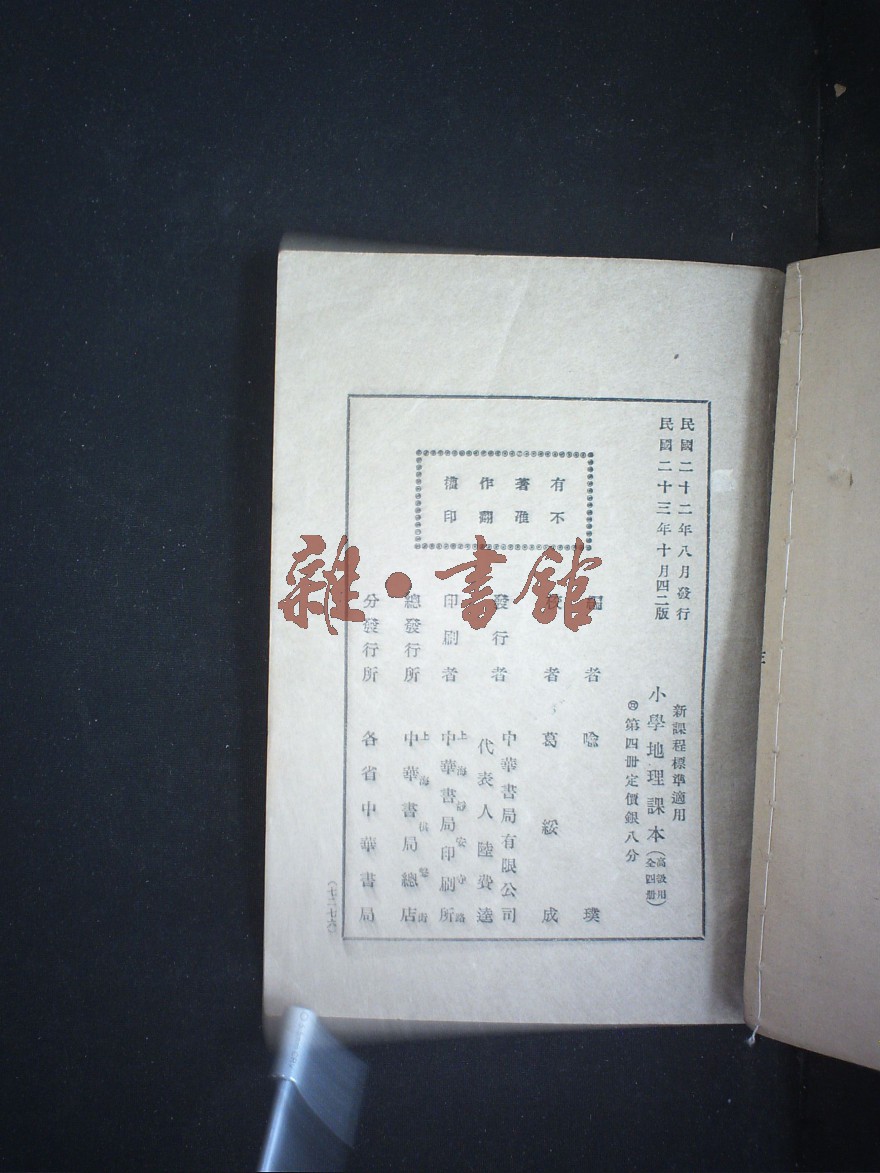 民國二十二年八月發行
民國二十三年十月四二版
新課程標準適用
小學地理課本（高級用全四册）
第四册定價銀八分
有著作權
不准翻印
者 喻 璞
校者 葛綏成
發行者 中華書局有限公司
代表人 陸費逵
印刷者 上海靜安寺路
中華書局印刷所
總發行所 上海
中華書局總店
分發行所 各省中華書局
雜·書館